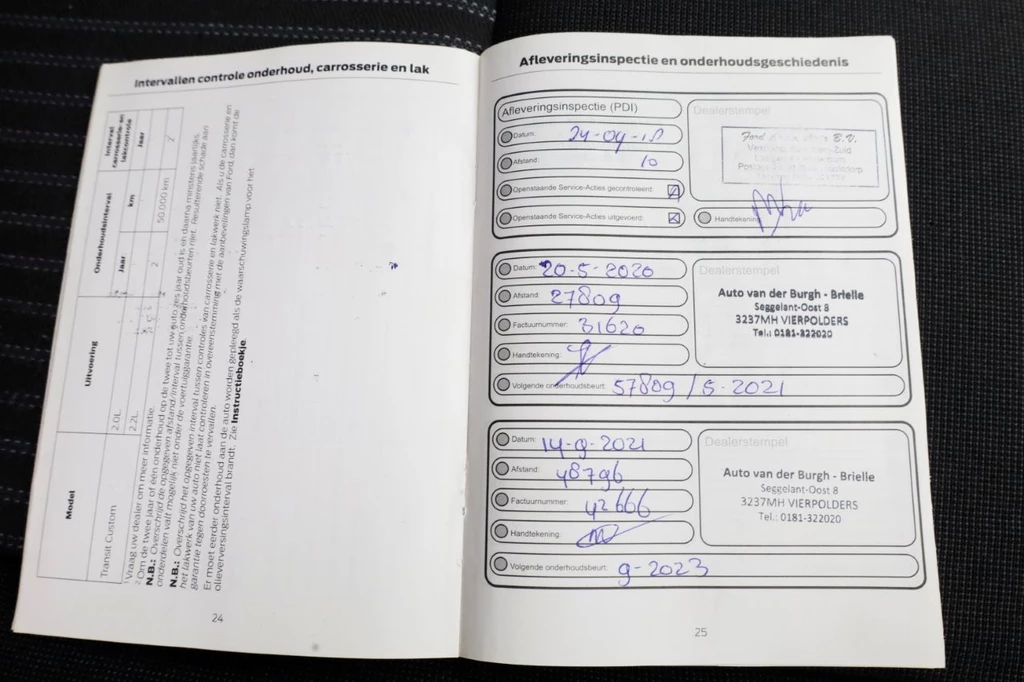 Intervallen controle onderhoud, carrosserie en lak
Model
Uitvoering
Onderhoudsinterval
Interval carrosserie- en lakcontrole
Jaar
km
Jaar
Transit Custom
2.0L
2.2L
2
50.000 km
2
¹ Vraag uw dealer om meer informatie.
² Om de twee jaar of één onderhoud op de twee tot uw auto zes jaar oud is en daarna minstens jaarlijks.
N.B.: Overschrijd de opgegeven afstand/interval tussen onderhoudsbeurten niet. Resulterende schade aan
onderdelen valt mogelijk niet onder de voertuiggarantie.
N.B.: Overschrijd het opgegeven interval tussen controles van carrosserie en lakwerk niet. Als u de carrosserie en
het lakwerk van uw auto niet laat controleren in overeenstemming met de aanbevelingen van Ford, dan komt de
garantie tegen doorroesten te vervallen.
Er moet eerder onderhoud aan de auto worden gepleegd als de waarschuwingslamp voor het
olieverversingsinterval brandt. Zie Instructieboekje.
24
Afleveringsinspectie en onderhoudsgeschiedenis
Afleveringsinspectie (PDI)
Dealerstempel
Datum: 24-04-18
Ford B.V.
Afstand: 10
Openstaande Service-Acties gecontroleerd:
Openstaande Service-Acties uitgevoerd:
Handtekening
Datum: 20-5-2020
Dealerstempel
Afstand: 27809
Auto van der Burgh - Brielle
Seggelant-Oost 8
Factuurnummer: 31620
3237MH VIERPOLDERS
Tel.: 0181-322020
Handtekening:
Volgende onderhoudsbeurt: 57809 / 5-2021
Datum: 14-9-2021
Dealerstempel
Afstand: 48796
Auto van der Burgh - Brielle
Seggelant-Oost 8
Factuurnummer: 42666
3237MH VIERPOLDERS
Tel.: 0181-322020
Handtekening:
Volgende onderhoudsbeurt: 9-2023
25